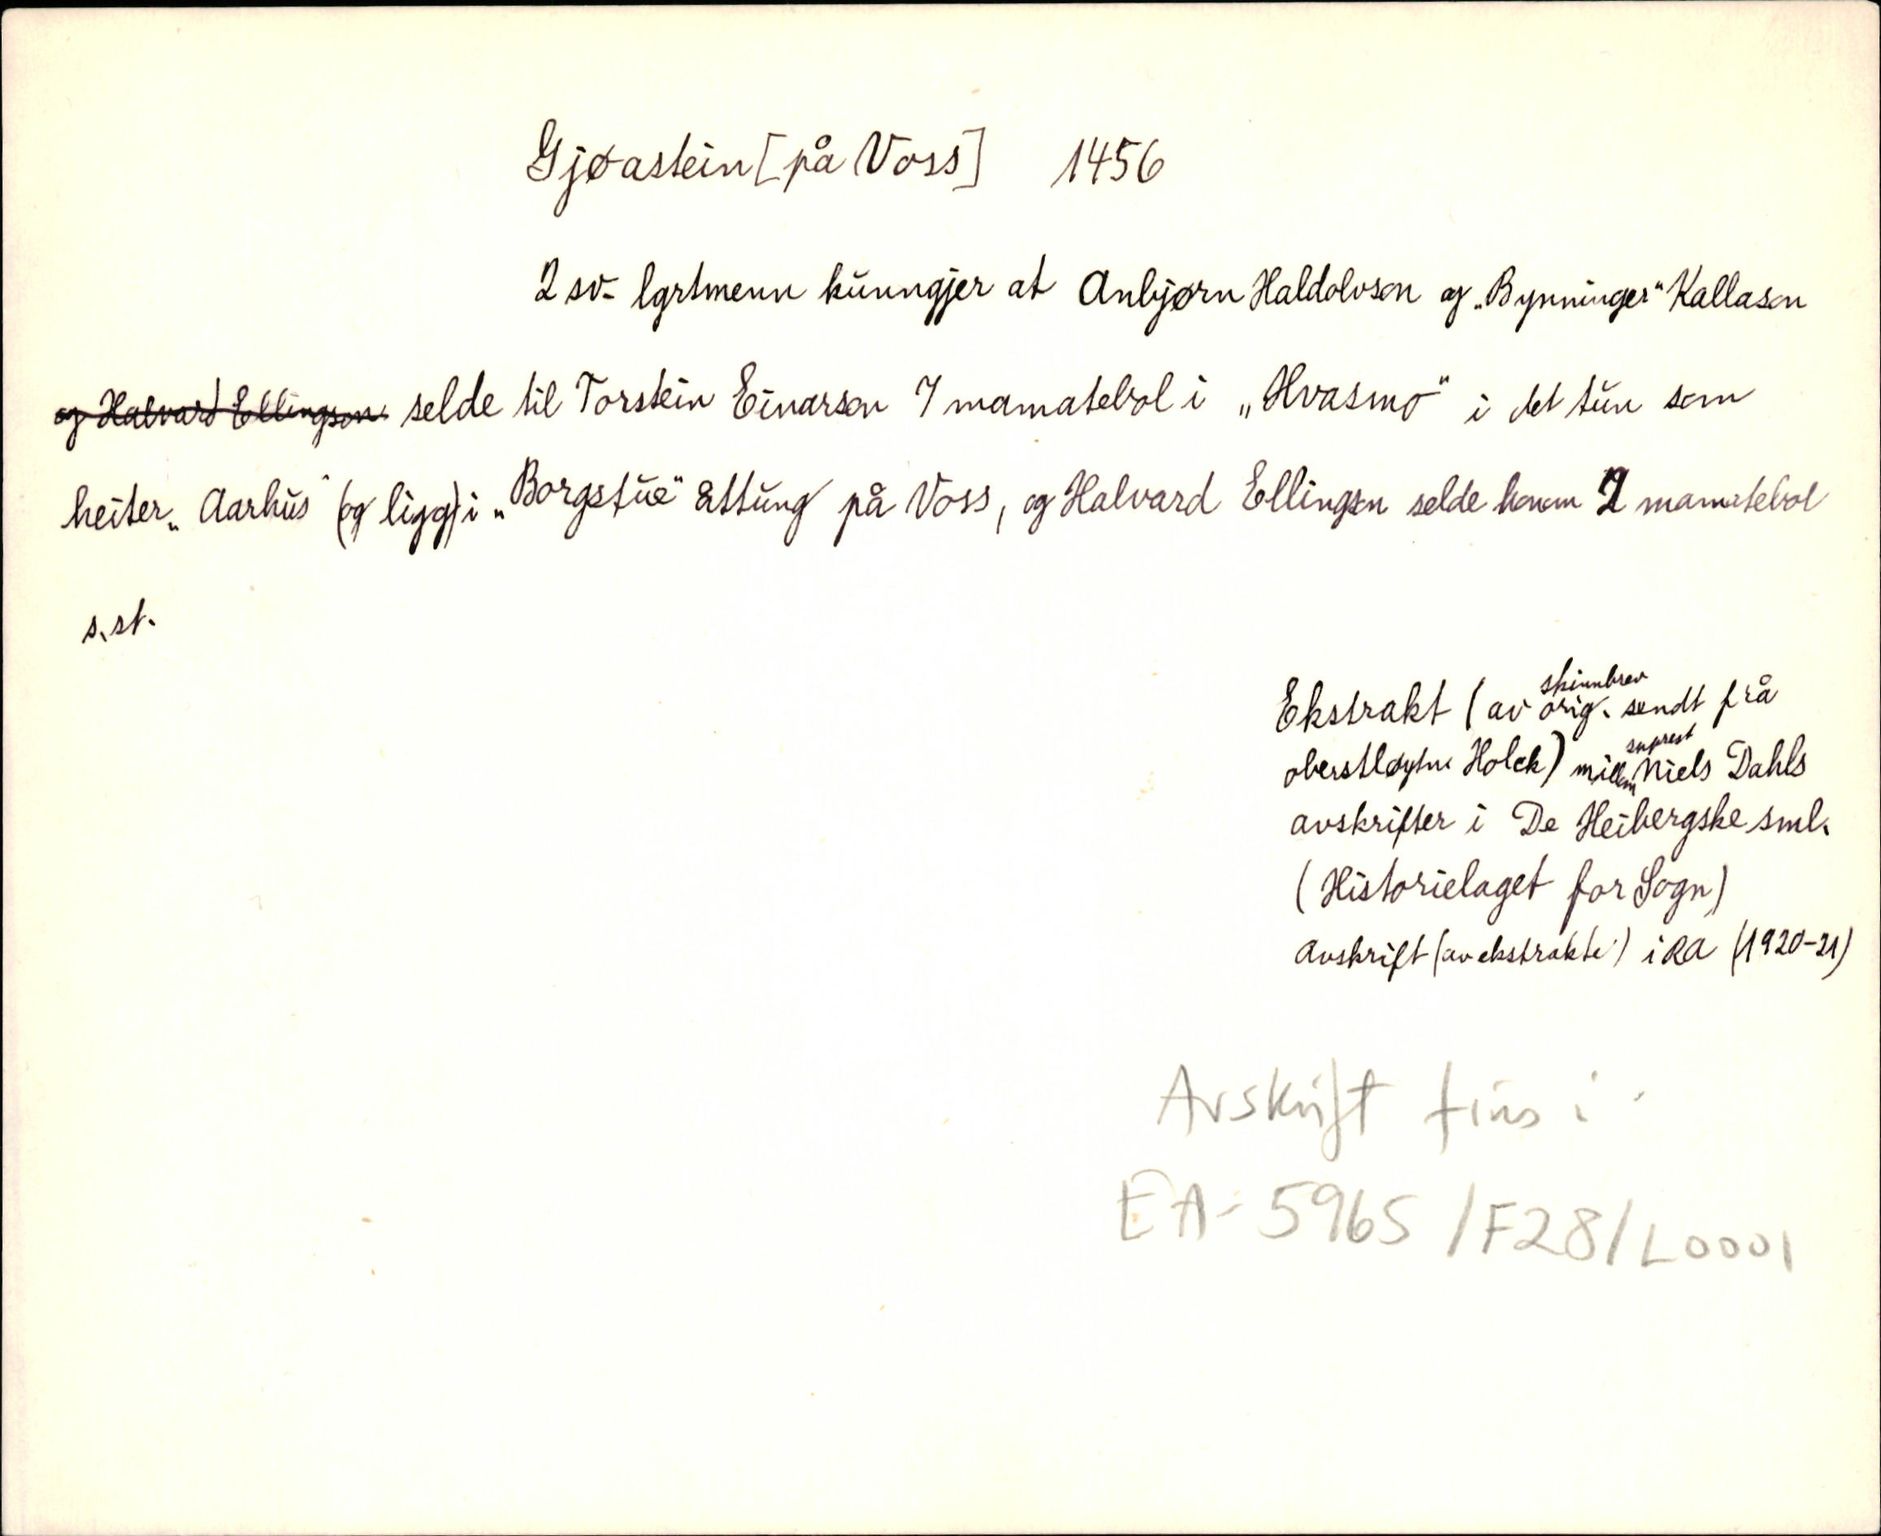 Gjøastein [på Voss] 1456
2 sv. lgrtmenn kunngjer at Anbjørn Haldolvson og „Bynninger“ Kallason
og Halvard Ellingson selde til Torstein Einarson 7 mamatebol i „Hvasmo“ i det tun som
heiter „Aarhus“ (og ligg) i „Borgstue“ åttung på Voss, og Halvard Ellingsn selde honom 2 mamatebol
s.st.
Ekstrakt (av orig. skinnbrev sendt frå
oberstløytn. Holck) millom suprest Niels Dahls
avskrifter i De Heibergske sml.
(Historielaget for Sogn)
Avskrift (av ekstrakte) i RA (1920-21)
Avskrift fins i
EA-5965/F28/L0001